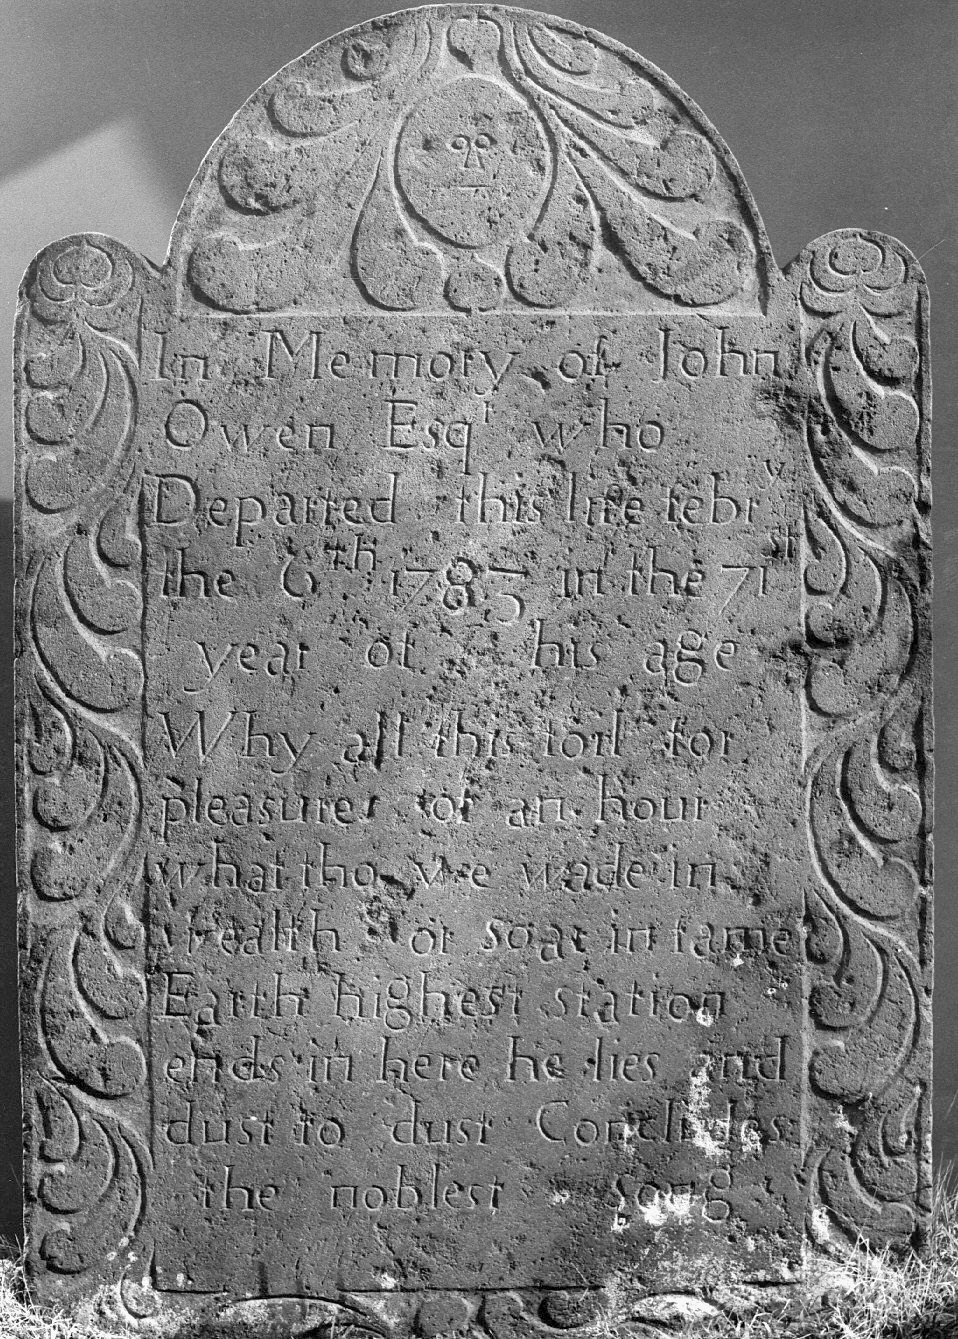 In Memory of John
Owen Esqr who
Departed this life febry
the 6th 1783 in the 71st
year of his age
Why all this toil for
pleasure for an hour
what tho we wade in
wealth or soar in fame
Earth highest station
ends in here he lies and
dust to dust Concludes
the noblest Song